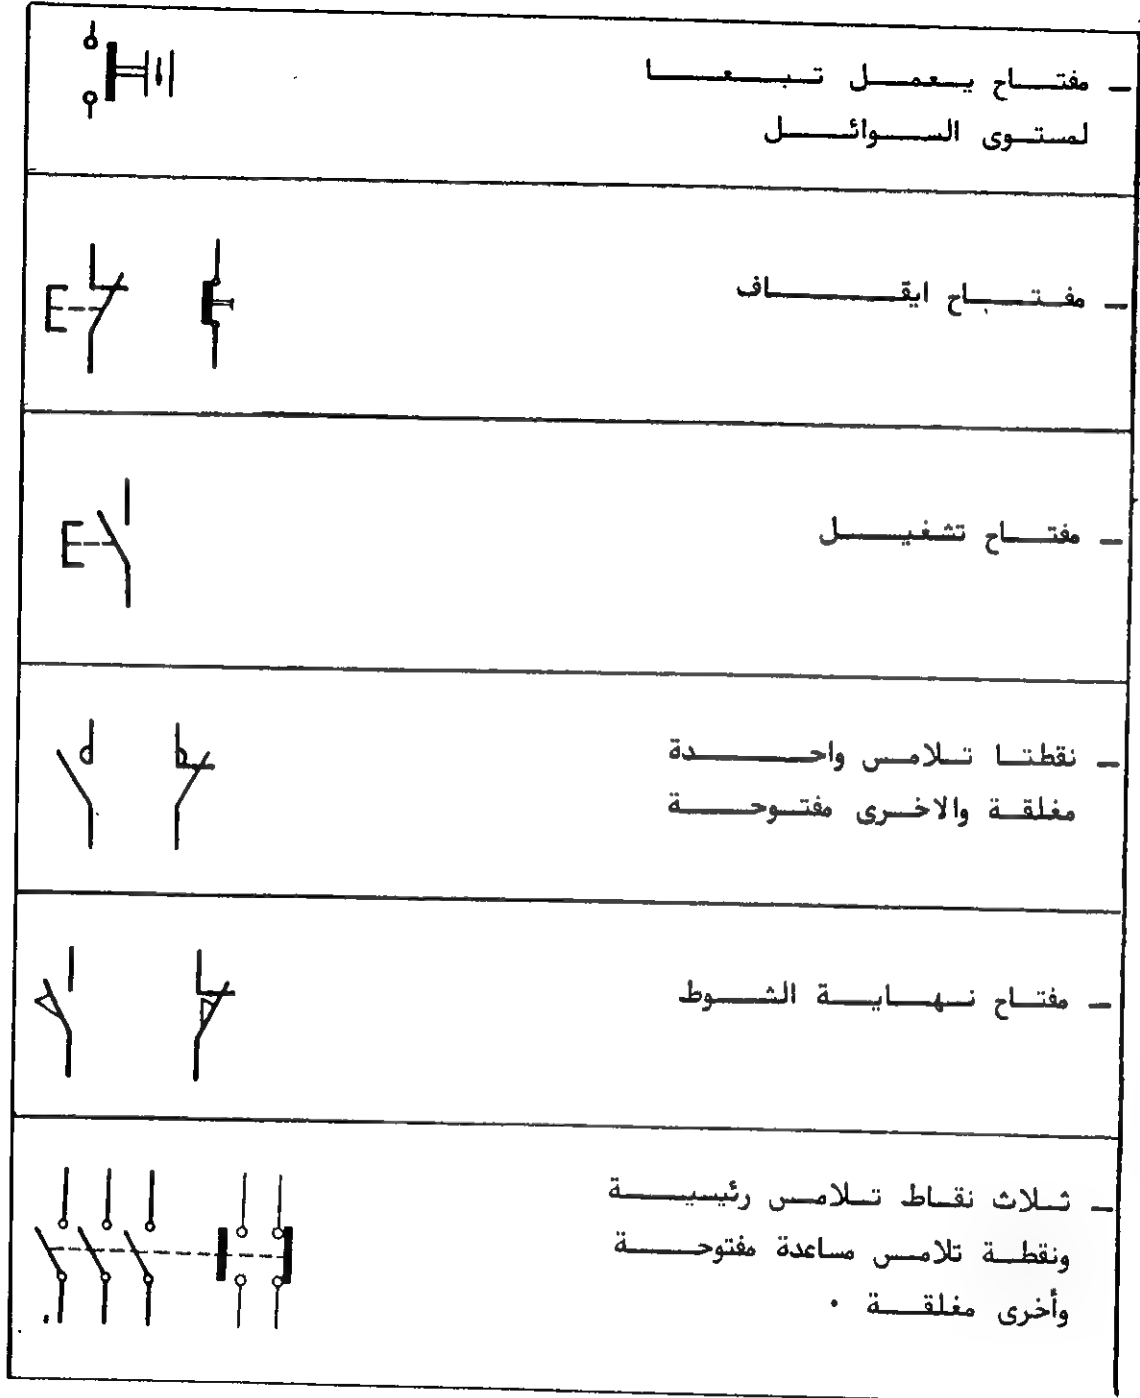 – مفتاح يعمل تبعا
لمستوى السوائل
– مفتاح ايقاف
– مفتاح تشغيل
– نقطتا تلامس واحدة
مغلقة والاخرى مفتوحة
– مفتاح نهاية الشوط
– ثلاث نقاط تلامس رئيسية
ونقطة تلامس مساعدة مفتوحة
وأخرى مغلقة .